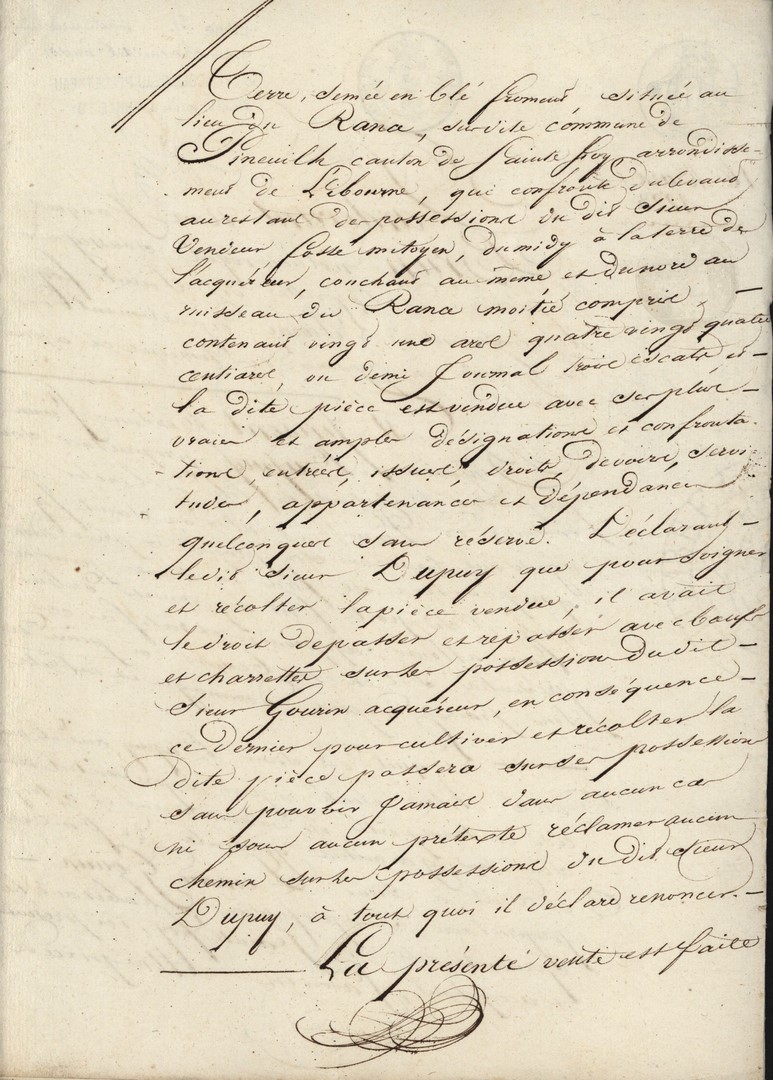 Terre, semée en blé froment située au
lieu du Ranca, susdite commune de
Pineuilh canton de Sainte foy, arrondisse-
ment de Libourne, qui confronte du levant
au restant des possessions du dit Sieur
Vendeur fossé mitoyen, du midy à la terre de
l'acquéreur, couchant au même et du nord au
ruisseau du Ranca moitié compris, —
contenant vingt une ares quatre vingt quatre
centiares, ou demi Journal trois escats, et —
la dite pièce est vendue avec ses plus —
vraies et amples désignations et confronta-
tions, entrées, issues, droits, devoirs, servi-
tudes, appartenances et dépendances
quelconques sans réserve. Déclarant —
le dit Sieur Dupuy que pour soigner
et récolter la pièce vendue, il avait
le droit de passer et repasser avec bœufs
et charrettes sur les possessions du dit —
Sieur Gourin acquéreur, en conséquence —
ce dernier pour cultiver et récolter la
dite pièce passera sur ses possessions
sans pouvoir Jamais dans aucun cas
ni sous aucun prétexte réclamer aucun
chemin sur les possessions du dit Sieur
Dupuy, à tout quoi il déclare renoncer. —
La présente vente est faite